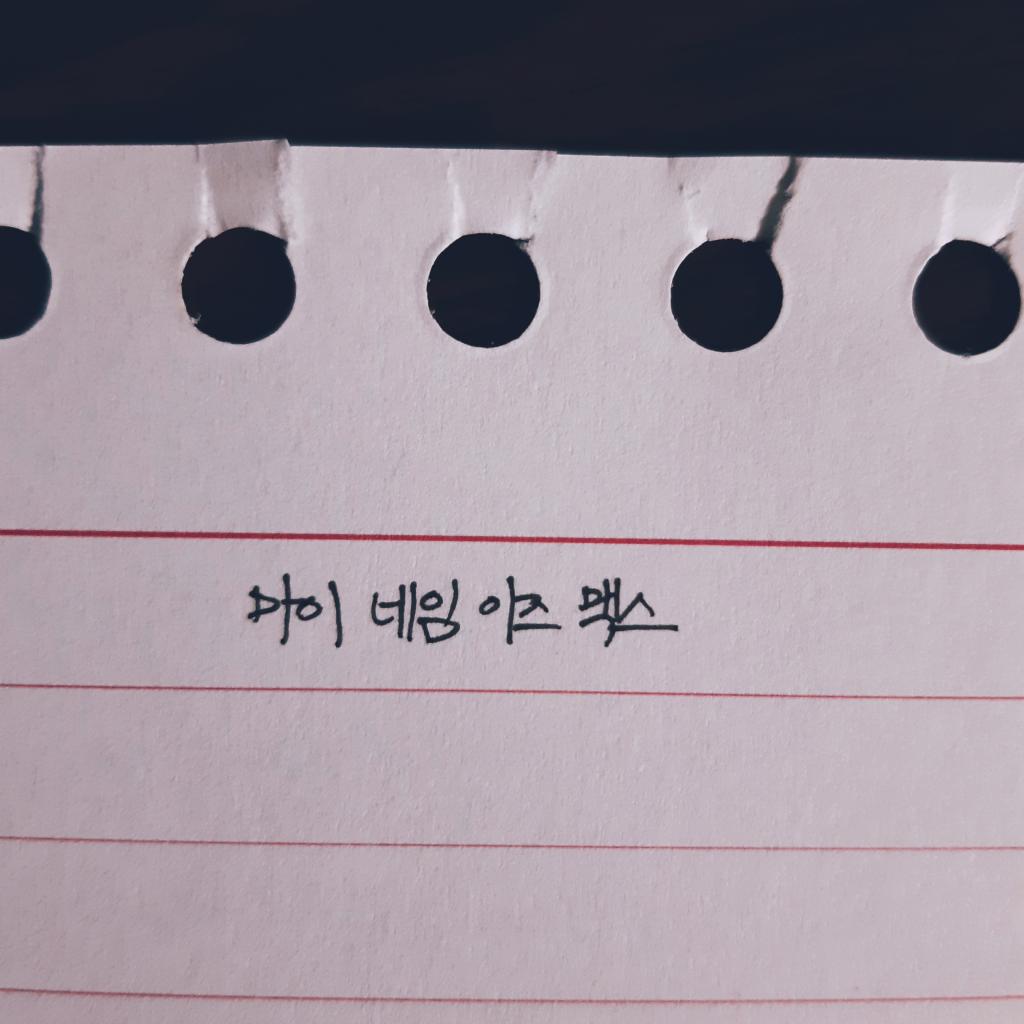 마이 네임 이즈 맥스